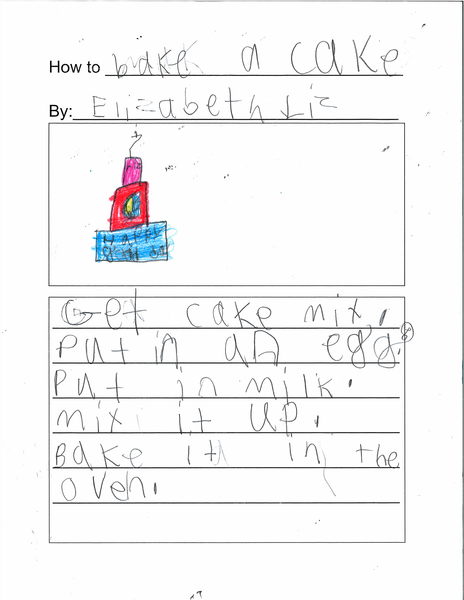 How to bake a cake
By: Elizabeth Liz
Get cake mix.
Put in an egg.
Put in milk.
mix it up.
Bake it in the
oven.